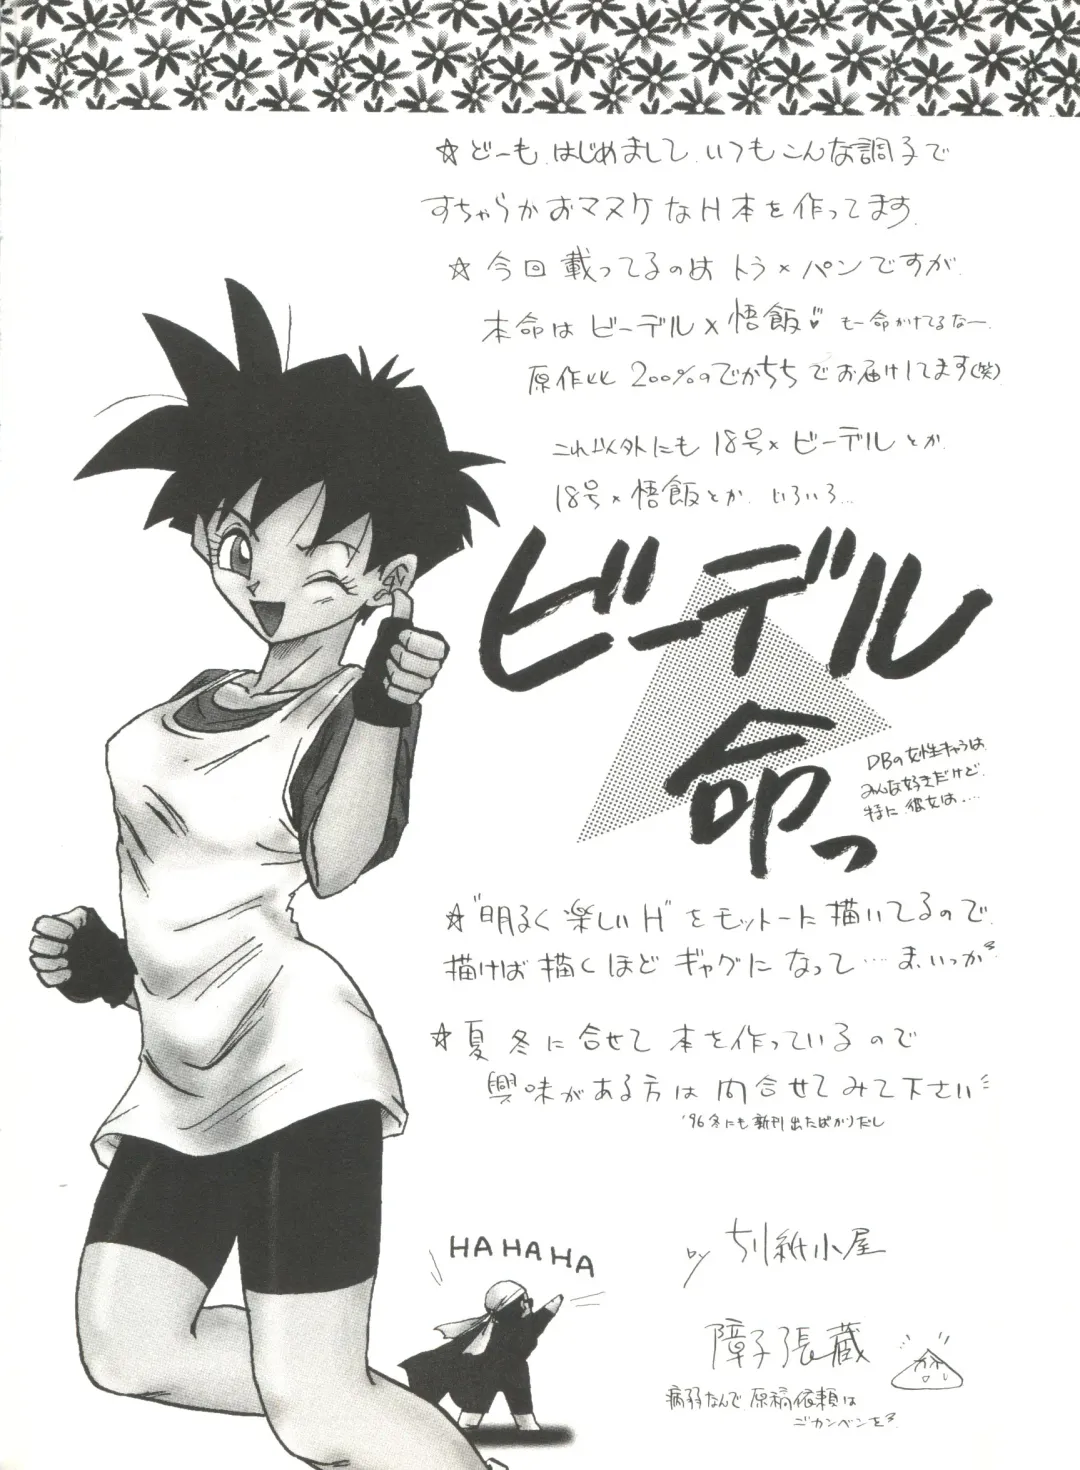 ☆どーも はじめまして いつもこんな調子で
すちゃらかおマヌケなH本を作ってます
☆今回 載ってるのは トラ×パンですが
本命は ビーデル×悟飯♡ もー命かけてるなー
原作比 200%のでかちちでお届けしてます(笑)
これ以外にも 18号×ビーデル とか
18号×悟飯とか いろいろ…
ビーデル
命っ
DBの女性キャラは
みんな好きだけど
特に 彼女は‥‥
☆"明るく 楽しいH"をモットーに描いてるので
描けば描くほどギャグになって… ま、いっか
☆夏冬に合せて 本を作っているので
興味がある方は 問合せてみて下さい
'96冬にも新刊出たばかりだし
HA HA HA
by ちり紙小屋
障子張蔵
病弱なんで 原稿依頼は
ゴカンベンを